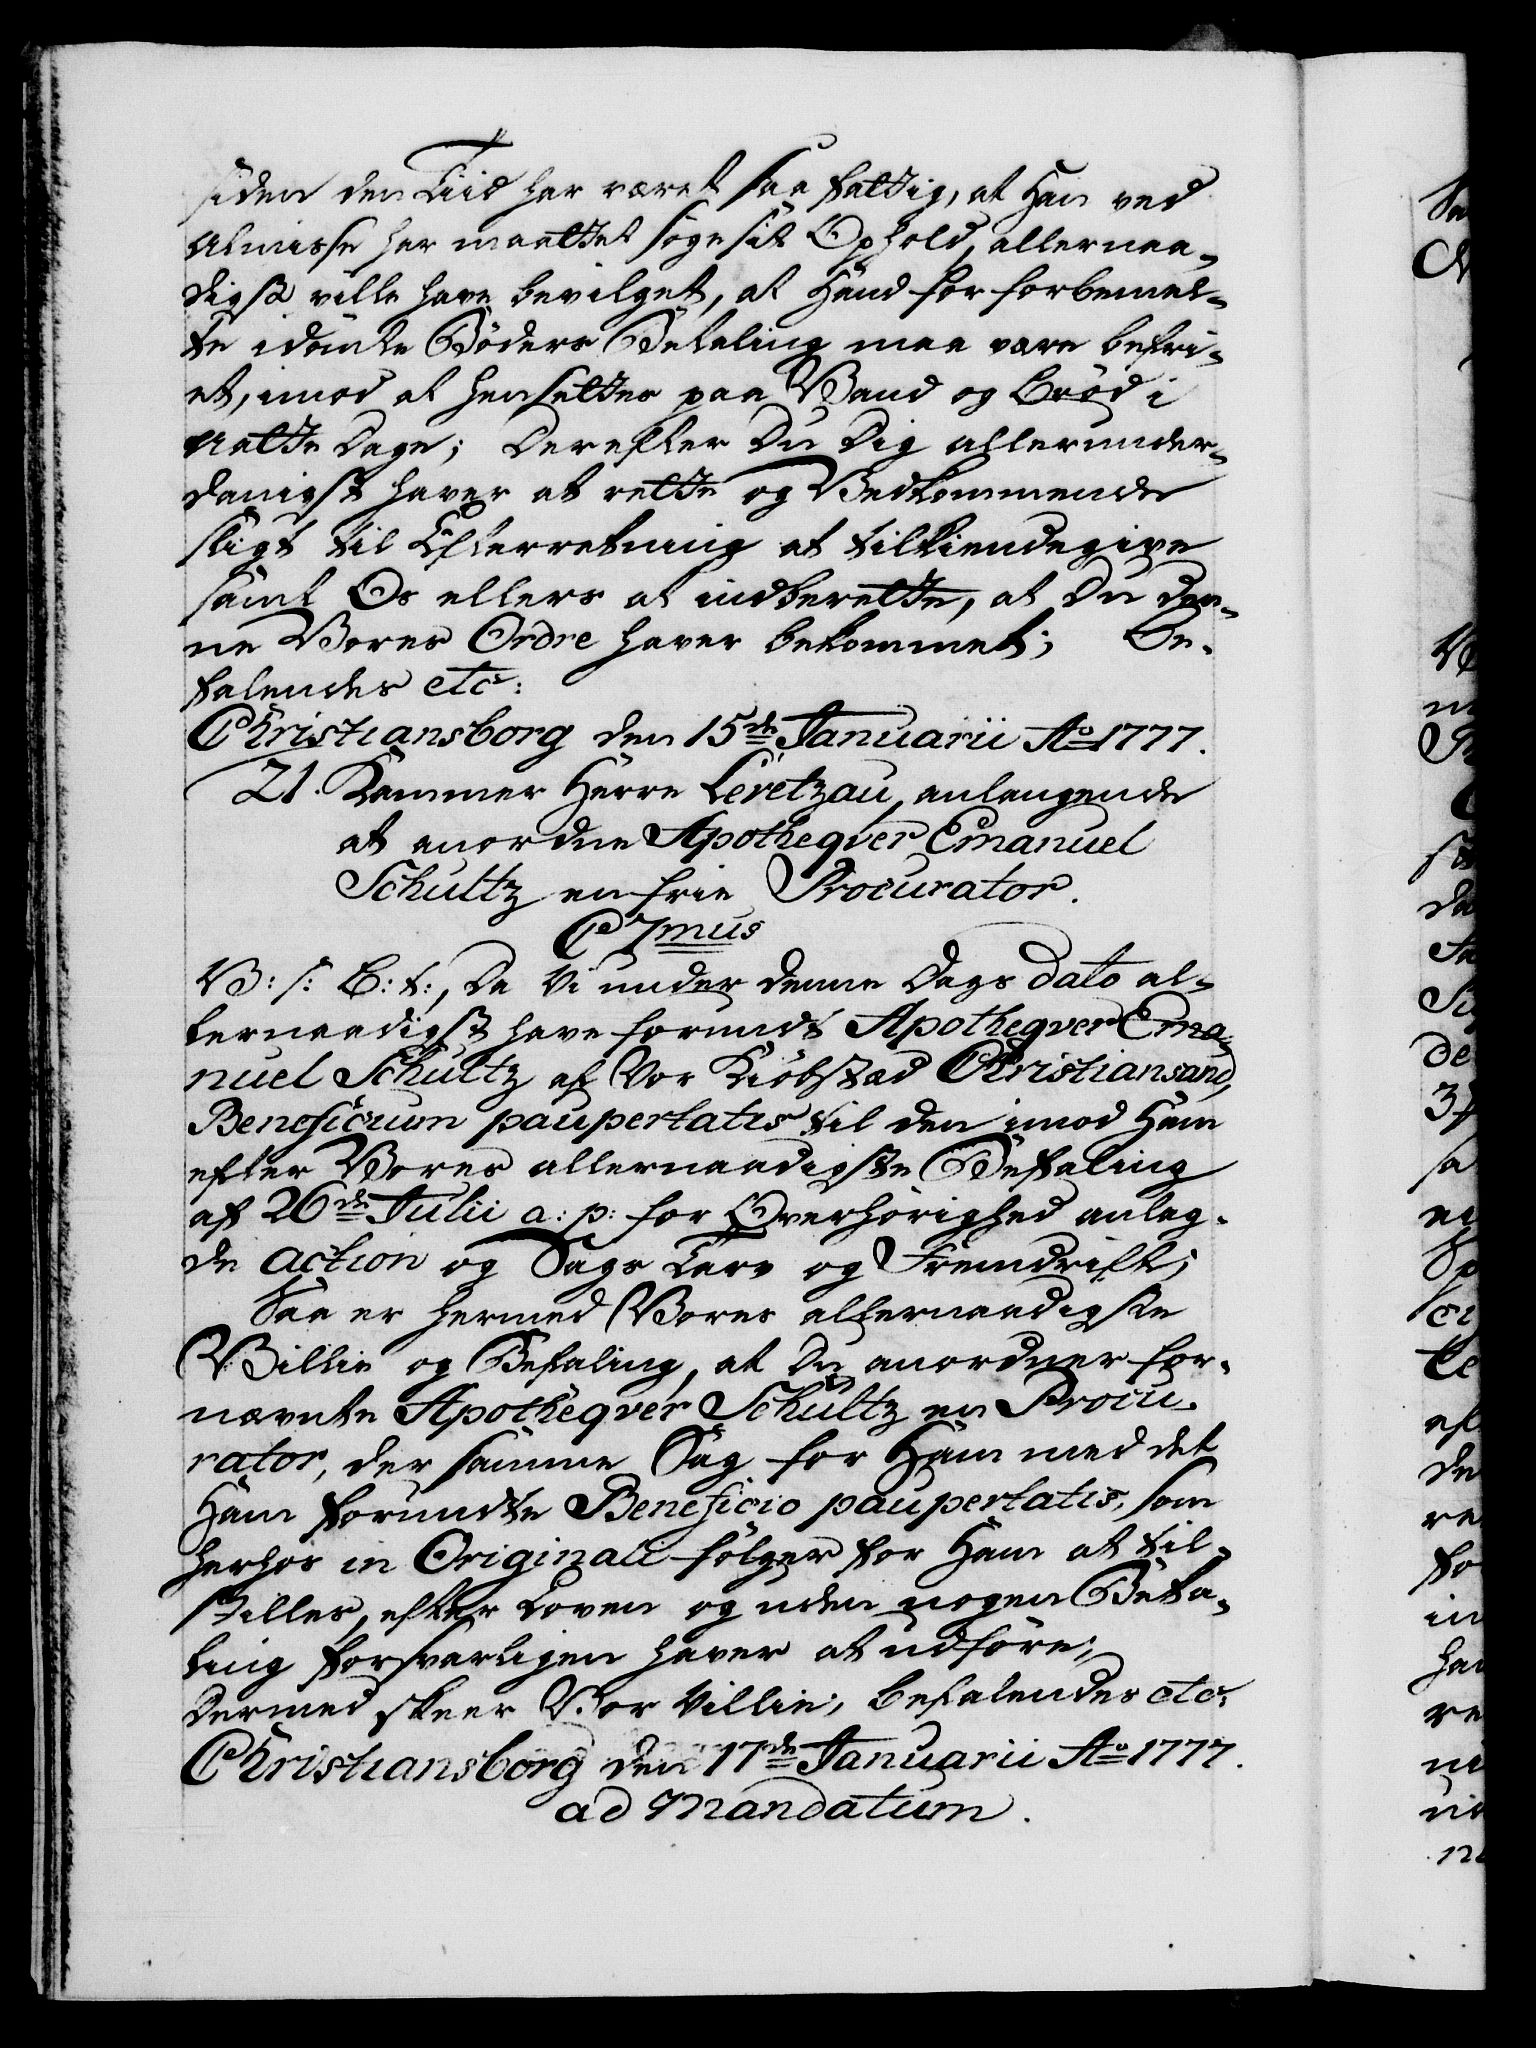 siden den Tiid har været saa fattig, at Han ved
Almisse har maattet søge sit Ophold, allernaa-
digst ville have bevilget, at Hand for forbemel-
te idømte Böders Betaling maa være befri-
et, imod at hensættes paa Vand og Bröd i
Aatte Dage; Derefter Du Dig allerunder-
danigst haver at rette og Vedkommende
sligt til Efterretning at tilkiendegive
samt Os ellers at indberette, at Du den-
ne Vores Ordre haver bekommet; Be-
falendes etc:
Christiansborg den 15de Januarii Ao 1777.
21. Kammer Herre Levetzau, anlangende
at anordne Apotheqver Emanuel
Schultz en frie Procurator.
C 7mus
V: s: B: t:, Da Vi under denne Dags dato al-
lernaadigst have forundt Apotheqver Ema-
nuel Schultz af Vor Kiöbstad Christiansand,
Beneficium paupertatis til den imod Ham
efter Vores allernaadigste Befaling
af 26de Julii a: p: for Overhörighed anlag-
de action og Sags Tarv og Fremdrift;
Saa er hermed Vores allernaadigste
Villie og Befaling, at Du anordner for-
nævnte Apotheqver Schultz en Procu-
rator, der samme Sag for Ham med det
Ham forundte Beneficio paupertatis, som
herhos in Originali følger for Ham at til-
stilles, efter Loven og uden nogen Beta-
ling forsvarligen haver at udföre;
Dermed skeer Vor Villie, befalendes etc:
Christiansborg den 17de Januarii Ao 1777.
ad Mandatum.